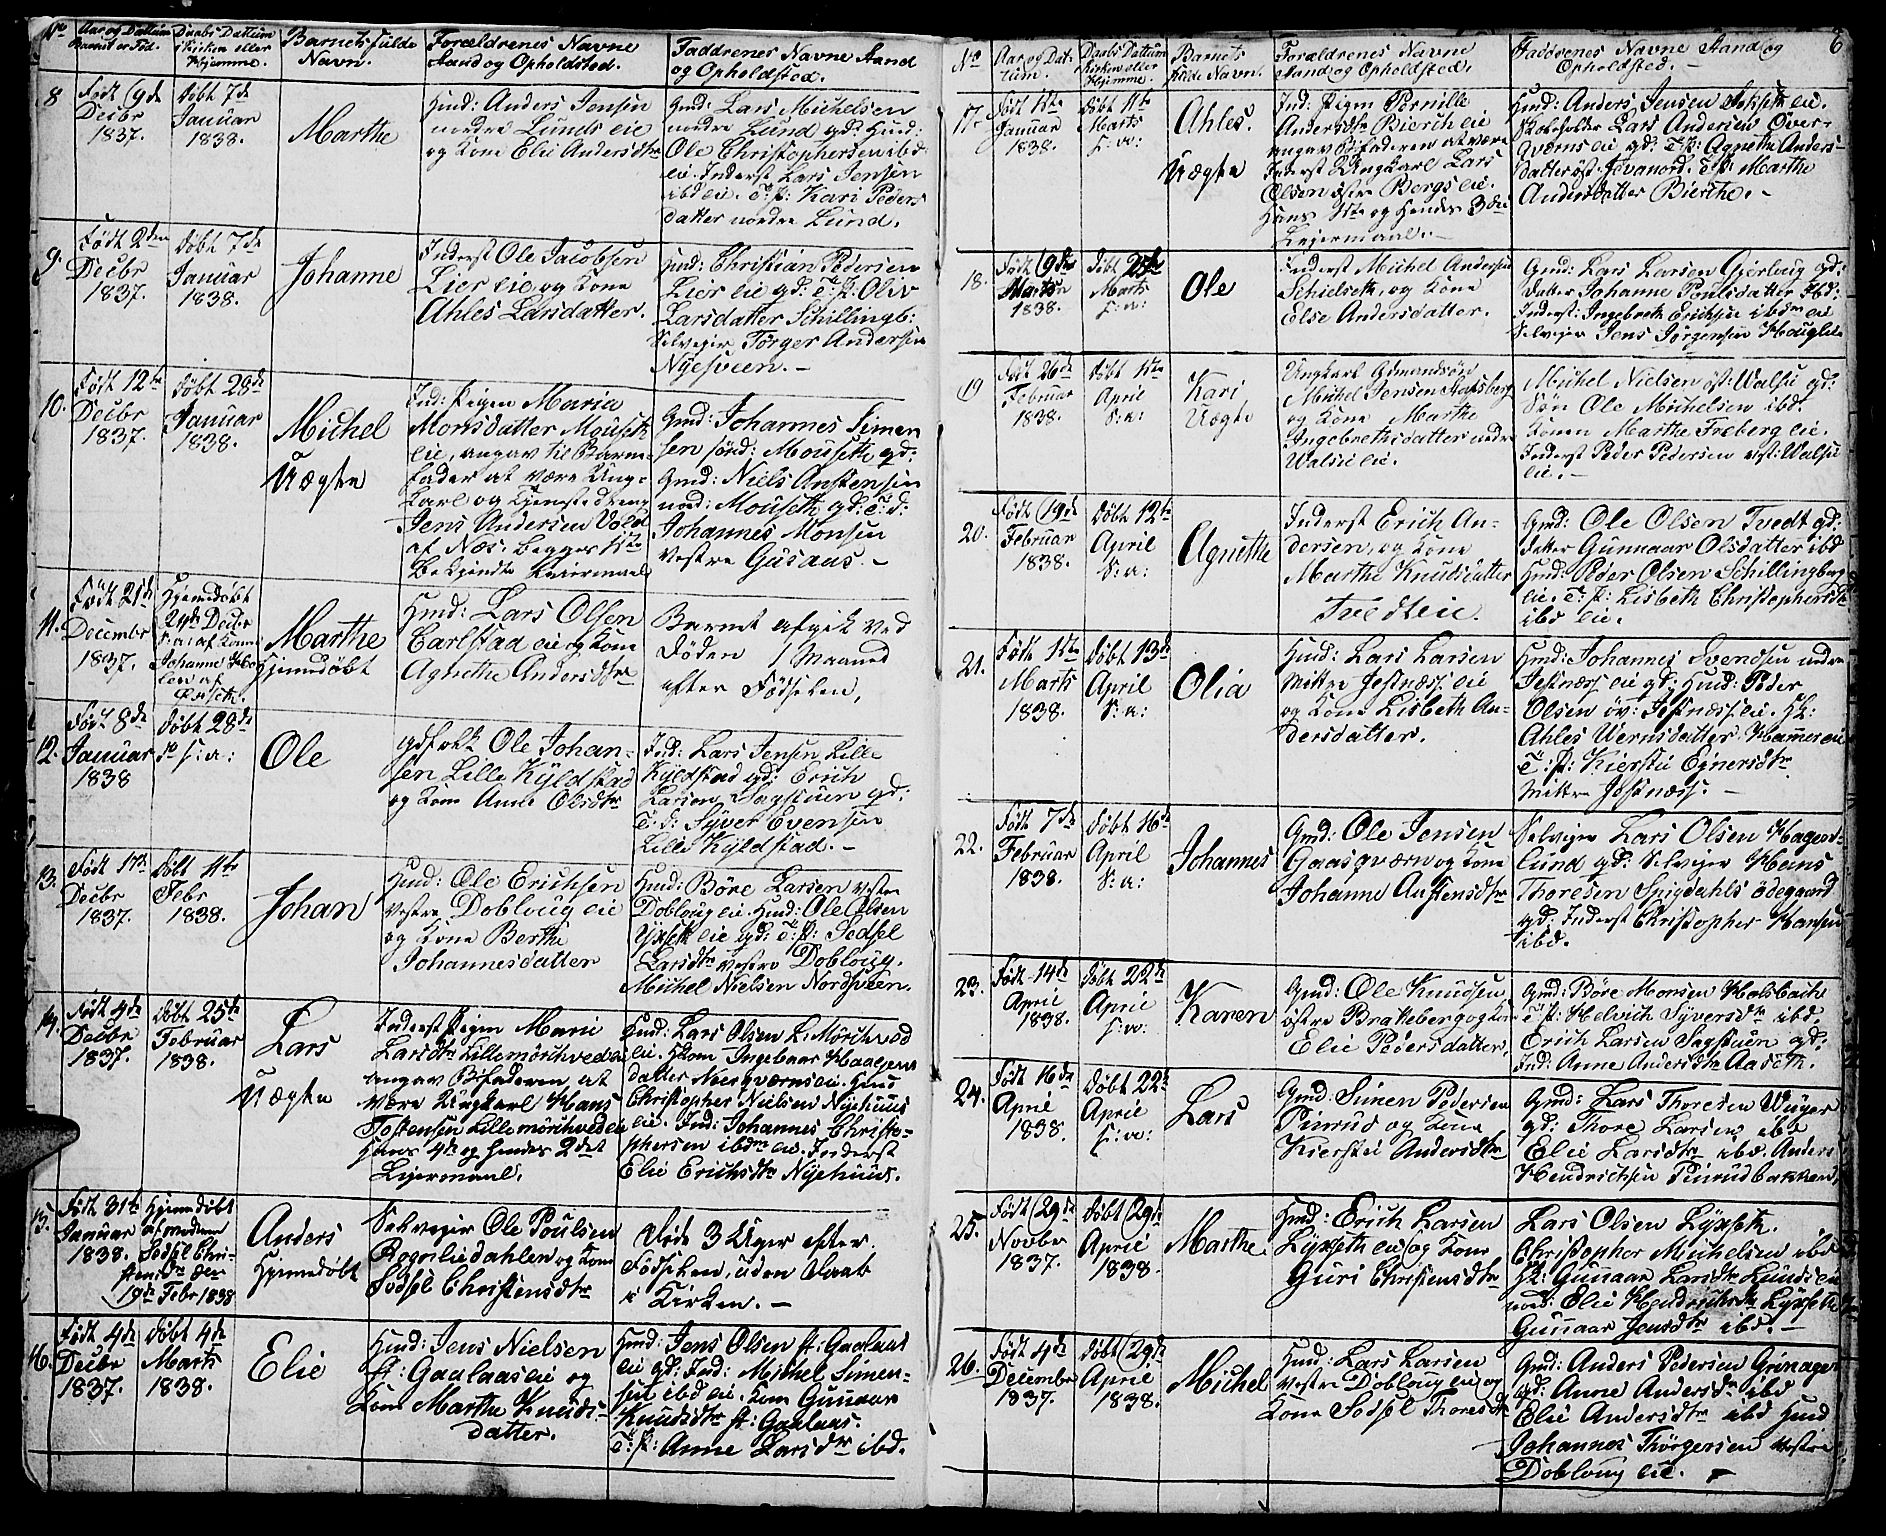 No
Aar og Dattum
Barnet er Fød.
Daabs Dattum
i Kirken eller
Hjemme.
Barnets fulde
Navn.
Forældrenes Navne
Stand og Opholdsted.
Faddrenes Navne Stand
og Opholdsted.
8
Født 9de
Decbr
1837.
Døbt 7de
Januar
1838.
Marthe
Huusmd: Anders Jensen
nordre Lunds eie
og Kone Elie Andersdtr
Gmd: Lars Michelsen
nordre Lund gd: Huusmd:
Ole Christophersen ibd:
eie. Inderst Lars Jensen
ibd eie. T: P: Kari Peders
datter nordre Lund.
9.
Født 2den
Decbr
1837.
Døbt 7de
Januar
1838.
Johanne
Inderst Ole Jacobsen
Lier eie og Kone
Ahles Larsdatter.
Huusmd: Christian Pedersen
Lier eie gd: T: P: Oliv
Larsdatter Schillingb:
Selveier Torger Andersen
Nyesveen.
10.
Født 12te
Decbr
1837.
Døbt 28de
Januar
1838.
Michel
Uægte
Ind: Pigen Maria
Monsdatter Mouseth
eie, angav til Barne-
fader at være Ung-
Karl og Tjenestedreng
Jens Andersen Vold
af Næs. Begges 1ste
Bekjendte Leiermaal
Gmd: Johannes Simen
sen sønd: Mouseth gd:
Gmd: Niels Anstensen
nord: Mouseth gd: T: d:
Johannes Monsen
Vestre Gusaas.
11.
Født 21de
Decembr
1837.
Hjemmedøbt
24de Decbr
s: a: af Konen
Johanne
Marthe
Hjemmdøbt
Huusmd: Lars Olsen
Carlstad eie og Kone
Agnethe Andersdtr
Barnet afgik ved
Døden 1 Maaned
efter Fødselen,
12.
Født 8de
Januar
1838
Døbt 28de
s: a:
Ole
Gdfolk Ole Johan-
sen Lille Kyldstad
og Kone Anne Olsdtr
Ind: Lars Jensen Lille
Kyldstad gd: Erich
Larsen Sagstuen gd:
T: d: Syver Evensen
Lille Kyldstad.
13.
Født 17de
Decbr
1837.
Døbt 11te
Febr
1838.
Johan
Huusmd: Ole Erichsen
Vestre Dobloug eie
og Kone Berthe
Johannesdatter
Huusmd: Børe Larsen vestre
Dobloug eie. Huusmd: Ole Olsen
Lyxseth eie gd: T: P: Sedsel
Larsdtr vestre Dobloug.
Michel Nielsen Nordsveen.
14.
Født 4de
Decbr
1837.
Døbt 25te
Februar
1838.
Lars
Uægte
Inderst Pigen Mari
Larsdtr Lillemörchveden
angav B:faderen at
være Ungkarl Hans
Jostensen Lillemörchveden
Hans 4de og hendes 2det
Leiermaal.
Huusmd: Lars Olsen L: Mörchved
eie. Kone Ingebaar Haagens
datter Næsqværns eie. Huusmd
Christopher Nielsen Nyehuus
eie. Ind: Johannes Christo-
phersen ibdm eie. Inderst
Elie Erichsdtr Nyehuus.
15.
Født 31te
Januar
1838.
Hjemmdøbt
af moderen
Sedsel Chri-
stensdtr den
19de Febr 1838
Anders
Hjemmdøbt
Selveier Ole Poulsen
Rognliedahlen og Kone
Sedsel Christensdtr
Døde 3 Uger efter
Fødselen, uden Daab
i Kirken.
16.
Født 4de
Decbr
1837.
Døbt 4de
Marts
1838.
Elie
Huusmd: Jens Nielsen
st: Gaalaas eie og
Kone Marthe Knuds-
datter.
Huusmd: Jens Olsen st: Gaalaas
eie gd: Ind: Michel Simen-
sen ibd eie. Kone Gunnaar
Knudsdtr st: Gaalaas.
T: P: Anne Larsdtr ibd.
No
Aar og Dat-
tum.
Daabs Dattum
i Kirken eller
Hjemme.
Barnets
fulde Navn.
Forældrenes Navne
Stand og Opholdsted.
Faddrenes Navne Stand og
Opholdsted.
6
17.
Født 1ste
Januar
1838.
Døbt 11te
Marts
s: a:
Ahles.
Uægte
Ind: Pigen Pernille
Andersdtr Bierch eie
angav B:faderen at være
Inderst Ungkarl Lars
Olsen østre Bergs eie.
Hans 1ste og hendes 3die
Leiermaal.
Huusmd: Anders Jensen eie.
Skoleholder Lars Andersen Over-
Qværns eie gd: T: P: Agnethe Anders-
datter T: P: Marthe
Andersdatter Bierche.
18.
Født 9de
Marts
1838.
Døbt 25de
Marts
s: a:
Ole
Inderst Michel Andersen
Schielseth, og Kone
Else Andersdatter.
Gmd: Lars Larsen Gjerlaug gd:
datter Johanne Poulsdatter ibd:
Inderst: Ingebreth Erichsen ibdm eie
Selveier Jens Jörgensen
19
Født 26de
Februar
1838.
Døbt 1ste
April
s: a:
Kari
Uægte
Ungkarl Gdmandsön
Michel Jensen
og Kone Marthe
Ingebrethsdatter nedre
Walsi eie.
Michel Nielsen øst: Walsii gd:
Sön Ole Michelsen ibd.
Konen Marthe Freberg eie.
Inderst Peder Pedersen øst: Walsii
eie.
20.
Født 19de
Februar
1838.
Døbt 12te
April
s: a:
Agnethe
Inderst Erich An-
dersen, og Kone
Marthe Knudsdatter
Tvedt eie.
Gmd: Ole Olsen Tvedt gd:
datter Gunnaar Olsdatter ibd
Huusmd: Peder Olsen Schillingberg
eie. T: P: Lisbeth Christophersdtr
ibd eie.
21.
Født 1ste
Marts
1838.
Døbt 13de
April
s: a:
Olia
Huusmd: Lars Larsen
Mittre Jestnæss: eie
og Kone Lisbeth An-
dersdatter.
Huusmd: Johannes Svendsen nedre
Jestnæss eie gd: Huusmd: Peder
Olsen öv: Jestnæss: eie. K:
Ahles Uernsdatter Hammer eie
T: P: Kierstie Egnersdtr
Mittre Jestnæss.
22.
Født 7de
Februar
1838.
Døbt 16de
April
s: a:
Johannes
Gmd: Ole Jensen
Gaasqværn og Kone
Johanne Austensdtr
Selveier Lars Olsen Hager-
lund gd: Selveier Hans
Thoresen Spigdahls ödegaard
gd: Inderst Christopher Hansen
ibd.
23.
Født 14de
April
1838.
Døbt 22de
April
s: a:
Karen
Gmd: Ole Knudsen
östre Brakeberg og Kone
Elie Pedersdatter.
Gmd: Böre Monsen Holsbach
T: P: Helvich Syversdtr ibd
Erich Larsen Sagstuen gd:
Ind: Anne Andersdtr Aaseth.
24.
Født 16de
April
1838.
Døbt 22de
April
s: a:
Lars
Gmd: Simen Pedersen
Pinrud og Kone
Kierstie Andersdtr
Gmd: Lars Thoresen Wüger
gd: Thore Larsen ibd
Elie Larsdtr ibd. Anders
Hendrichsen Pinrudbakken.
25.
Født 29de
Novbr
1837.
Døbt 29de
April
1838.
Marthe
Huusmd: Erich Larsen
Lyxseth eie og Kone
Guri Christensdtr
Lars Olsen Lyxseth.
Christopher Michelsen ibd
K: Gunnaar Larsdtr Lunds eie
nord: Elie Hendrichsdtr Lyxseth
Gunnaar Jensdtr ibd.
26.
Født 4de
December
1837.
Døbt 29de
April
1838.
Michel
Huusmd: Lars Larsen
vestre Dobloug eie og
Kone Sedsel Thoresdtr
Gmd: Anders Pedersen Grinager
gd: Anne Andersdtr ibd
Elie Andersdtr ibd Huusmd
Johannes Thörgersen vestre
Dobloug eie.